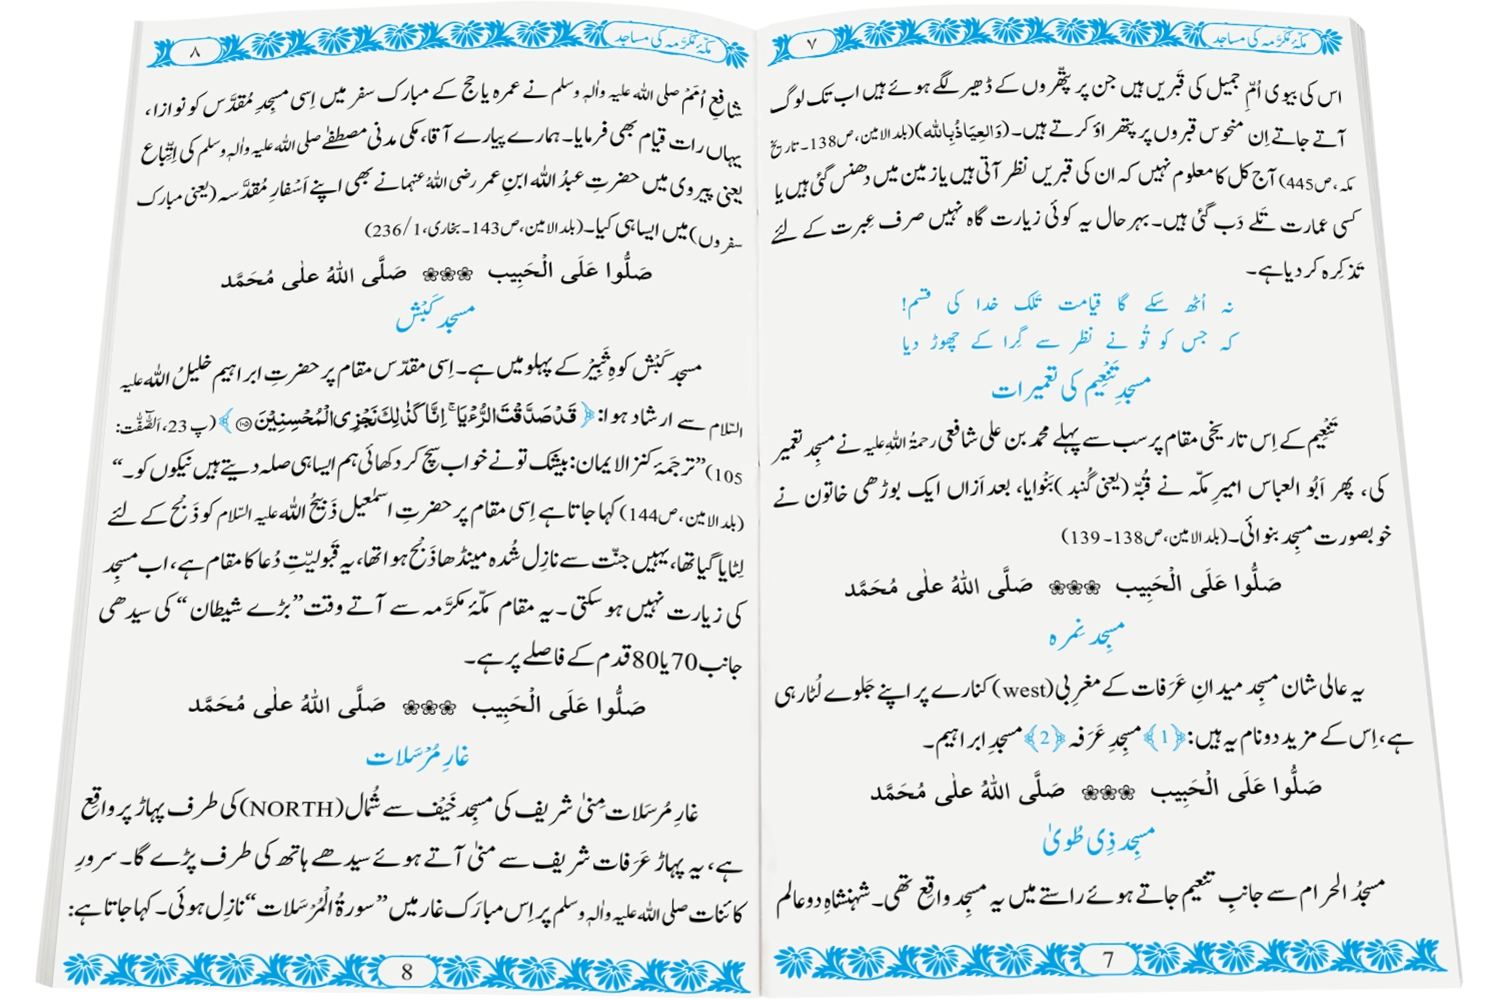 مکّۂ مکرَّمہ کی مساجد
۷
اس کی بیوی اُمِّ جمیل کی قَبریں ہیں جن پر پتّھروں کے ڈھیر لگے ہوئے ہیں اب تک لوگ
آتے جاتے اِن منحوس قبروں پر پتھراؤ کرتے ہیں۔ (وَالعِیاذُبِاللہ)(بلدالامین،ص138۔تاریخ
مکہ،ص445) آج کل کا معلوم نہیں کہ ان کی قبریں نظر آتی ہیں یا زمین میں دھنس گئی ہیں یا
کسی عمارت تَلے دَب گئی ہیں۔ بہر حال یہ کوئی زیارت گاہ نہیں صرف عِبرت کے لئے
تذکِرہ کر دیا ہے۔
نہ اُٹھ سکے گا قیامت تلک خدا کی قسم!
کہ جس کو تُو نے نظر سے گِرا کے چھوڑ دیا
مسجدِ تَنْعِیم کی تعمیرات
تَنْعِیم کے اِس تاریخی مقام پر سب سے پہلے محمد بن علی شافعی رحمۃُ اللہِ علیہ نے مسجِد تعمیر
کی، پھر اَبُو العباس امیرِ مکّہ نے قُبَّہ (یعنی گُنبد) بَنْوایا، بعد اَزاں ایک بوڑھی خاتون نے
خوبصورت مسجِد بنوائی۔ (بلدالامین،ص138۔139)
صَلُّوا عَلَی الْحَبِیب صَلَّی اللهُ علٰی مُحَمَّد
مسجِد نَمِرہ
یہ عالی شان مسجِد میدانِ عَرَفات کے مغرِبی (west) کنارے پر اپنے جَلوے لُٹا رہی
ہے، اِس کے مزید دو نام یہ ہیں: ﴿1﴾ مسجِدِ عَرَفہ ﴿2﴾ مسجدِ ابراہیم۔
صَلُّوا عَلَی الْحَبِیب صَلَّی اللهُ علٰی مُحَمَّد
مسجِد ذِی طُویٰ
مسجدُ الحرام سے جانبِ تنعیم جاتے ہوئے راستے میں یہ مسجِد واقِع تھی۔ شہنشاہِ دو عالم
7
مکّۂ مکرَّمہ کی مساجد
۸
شافِعِ اُمَمْ صلی اللہ علیہ واٰلہٖ وسلم نے عمرہ یا حج کے مبارک سفر میں اِسی مسجِدِ مُقدَّس کو نوازا،
یہاں رات قیام بھی فرمایا۔ ہمارے پیارے آقا، مکی مدنی مصطفےٰ صلی اللہ علیہ واٰلہٖ وسلم کی اِتِّباع
یعنی پیروی میں حضرتِ عبدُ اللہ ابنِ عمر رضی اللہُ عنہما نے بھی اپنے اَسْفارِ مُقدَّسہ (یعنی مبارک
سفروں) میں ایسا ہی کیا۔ (بلدالامین،ص143۔بخاری،1/236)
صَلُّوا عَلَی الْحَبِیب صَلَّی اللهُ علٰی مُحَمَّد
مسجد کَبْش
مسجد کَبْش کوہِ ثَبِیْر کے پہلو میں ہے۔ اِسی مقدّس مقام پر حضرتِ ابراہیم خلیلُ اللہ علیہ
السّلام سے ارشاد ہوا: ﴿قَدْ صَدَّقْتَ الرُّءْیَاۚ اِنَّا كَذٰلِكَ نَجْزِی الْمُحْسِنِیْنَ﴾ (پ 23، اَلصّٰٓفّٰت:
105) ”ترجَمۂ کنزالایمان: بیشک تو نے خواب سچ کر دکھائی ہم ایسا ہی صلہ دیتے ہیں نیکوں کو۔“
(بلدالامین،ص144) کہا جاتا ہے اِسی مقام پر حضرتِ اسمٰعیل ذَبِیحُ اللہ علیہ السّلام کو ذَبْح کے لئے
لِٹایا گیا تھا، یہیں جنّت سے نازِل شُدہ مینڈھا ذَبْح ہوا تھا، یہ قبولیّتِ دُعا کا مقام ہے، اب مسجِد
کی زیارت نہیں ہو سکتی۔ یہ مقام مکّۂ مکرَّمہ سے آتے وقت ”بڑے شیطان“ کی سیدھی
جانب 70 یا 80 قدم کے فاصلے پر ہے۔
صَلُّوا عَلَی الْحَبِیب صَلَّی اللهُ علٰی مُحَمَّد
غارِ مُرْسَلات
غارِ مُرسَلات مِنیٰ شریف کی مسجِد خَیْف سے شُمال (NORTH) کی طرف پہاڑ پر واقِع
ہے، یہ پہاڑ عَرَفات شریف سے منیٰ آتے ہوئے سیدھے ہاتھ کی طرف پڑے گا۔ سرورِ
کائنات صلی اللہ علیہ واٰلہٖ وسلم پر اِس مبارَک غار میں ”سورۃُ الْمُرْسَلات“ نازِل ہوئی۔ کہا جاتا ہے:
8